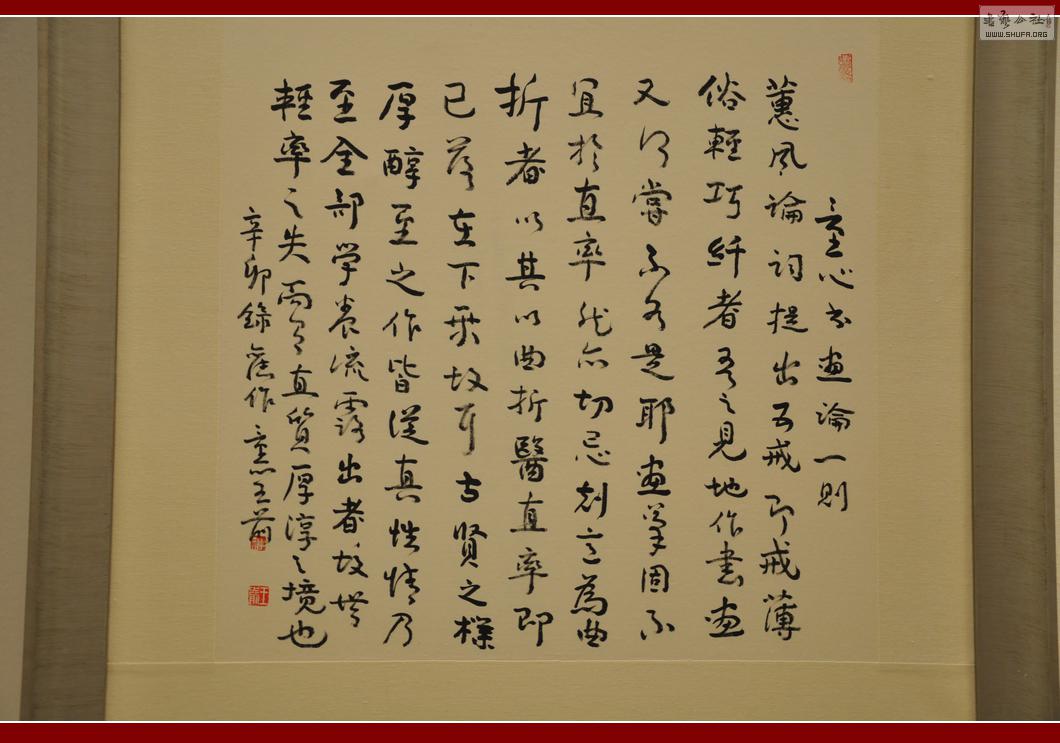 童心书画論一則
蕙風論詞提出五戒即戒薄
俗輕巧纤者吾之見地作書画
又何嘗不如是耶画筆固不
宜於直率然亦切忌刻意為曲
折者以其以曲折醫直率即
已落在下乘故耳古賢之樸
厚醇至之作皆從真性情乃
至全部学养流露出者故無
輕率之失而有直質厚淳之境也
辛卯錄舊作
書法公社
WWW.SHUFA.ORG